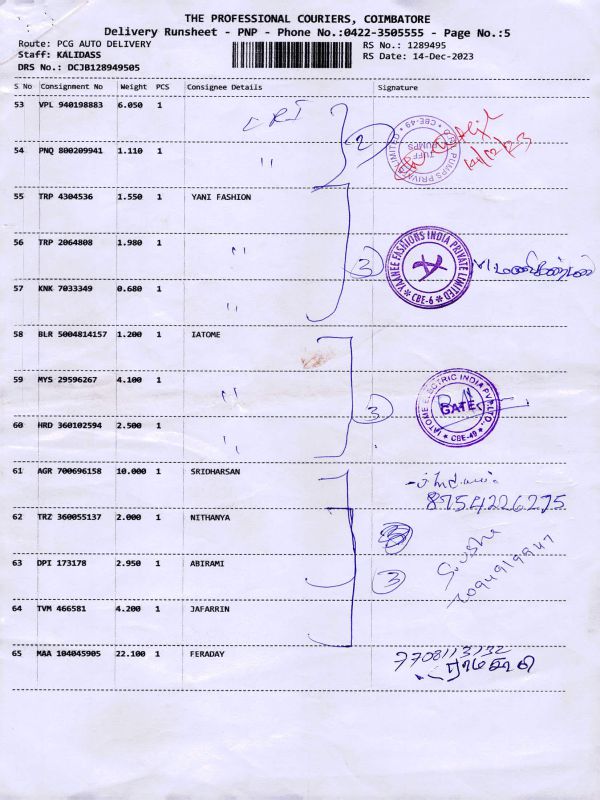 THE PROFESSIONAL COURIERS, COIMBATORE
Delivery Runsheet - PNP - Phone No.:0422-3505555 - Page No.:5
Route: PCG AUTO DELIVERY
RS No.: 1289495
Staff: KALIDASS
RS Date: 14-Dec-2023
DRS No.: DCJB128949505
S No Consignment No Weight PCS Consignee Details Signature
53 VPL 940198883 6.050 1 CRI
2
54 PNQ 800209941 1.110 1 "
14/12/23
55 TRP 4304536 1.550 1 YANI FASHION
56 TRP 2064808 1.980 1 "
3
YAANEE FASHIONS INDIA PRIVATE LIMITED * CBE-6 *
57 KNK 7033349 0.680 1 "
58 BLR 5004814157 1.200 1 IATOME
59 MYS 29596267 4.100 1 "
3
IATOME ELECTRIC INDIA PVT.LTD. * CBE-49 *
GATE
60 HRD 360102594 2.500 1 "
61 AGR 700696158 10.000 1 SRIDHARSAN
8754226275
62 TRZ 360055137 2.000 1 NITHANYA
63 DPI 173178 2.950 1 ABIRAMI
3
64 TVM 466581 4.200 1 JAFARRIN
65 MAA 104045905 22.100 1 FERADAY
7708113732